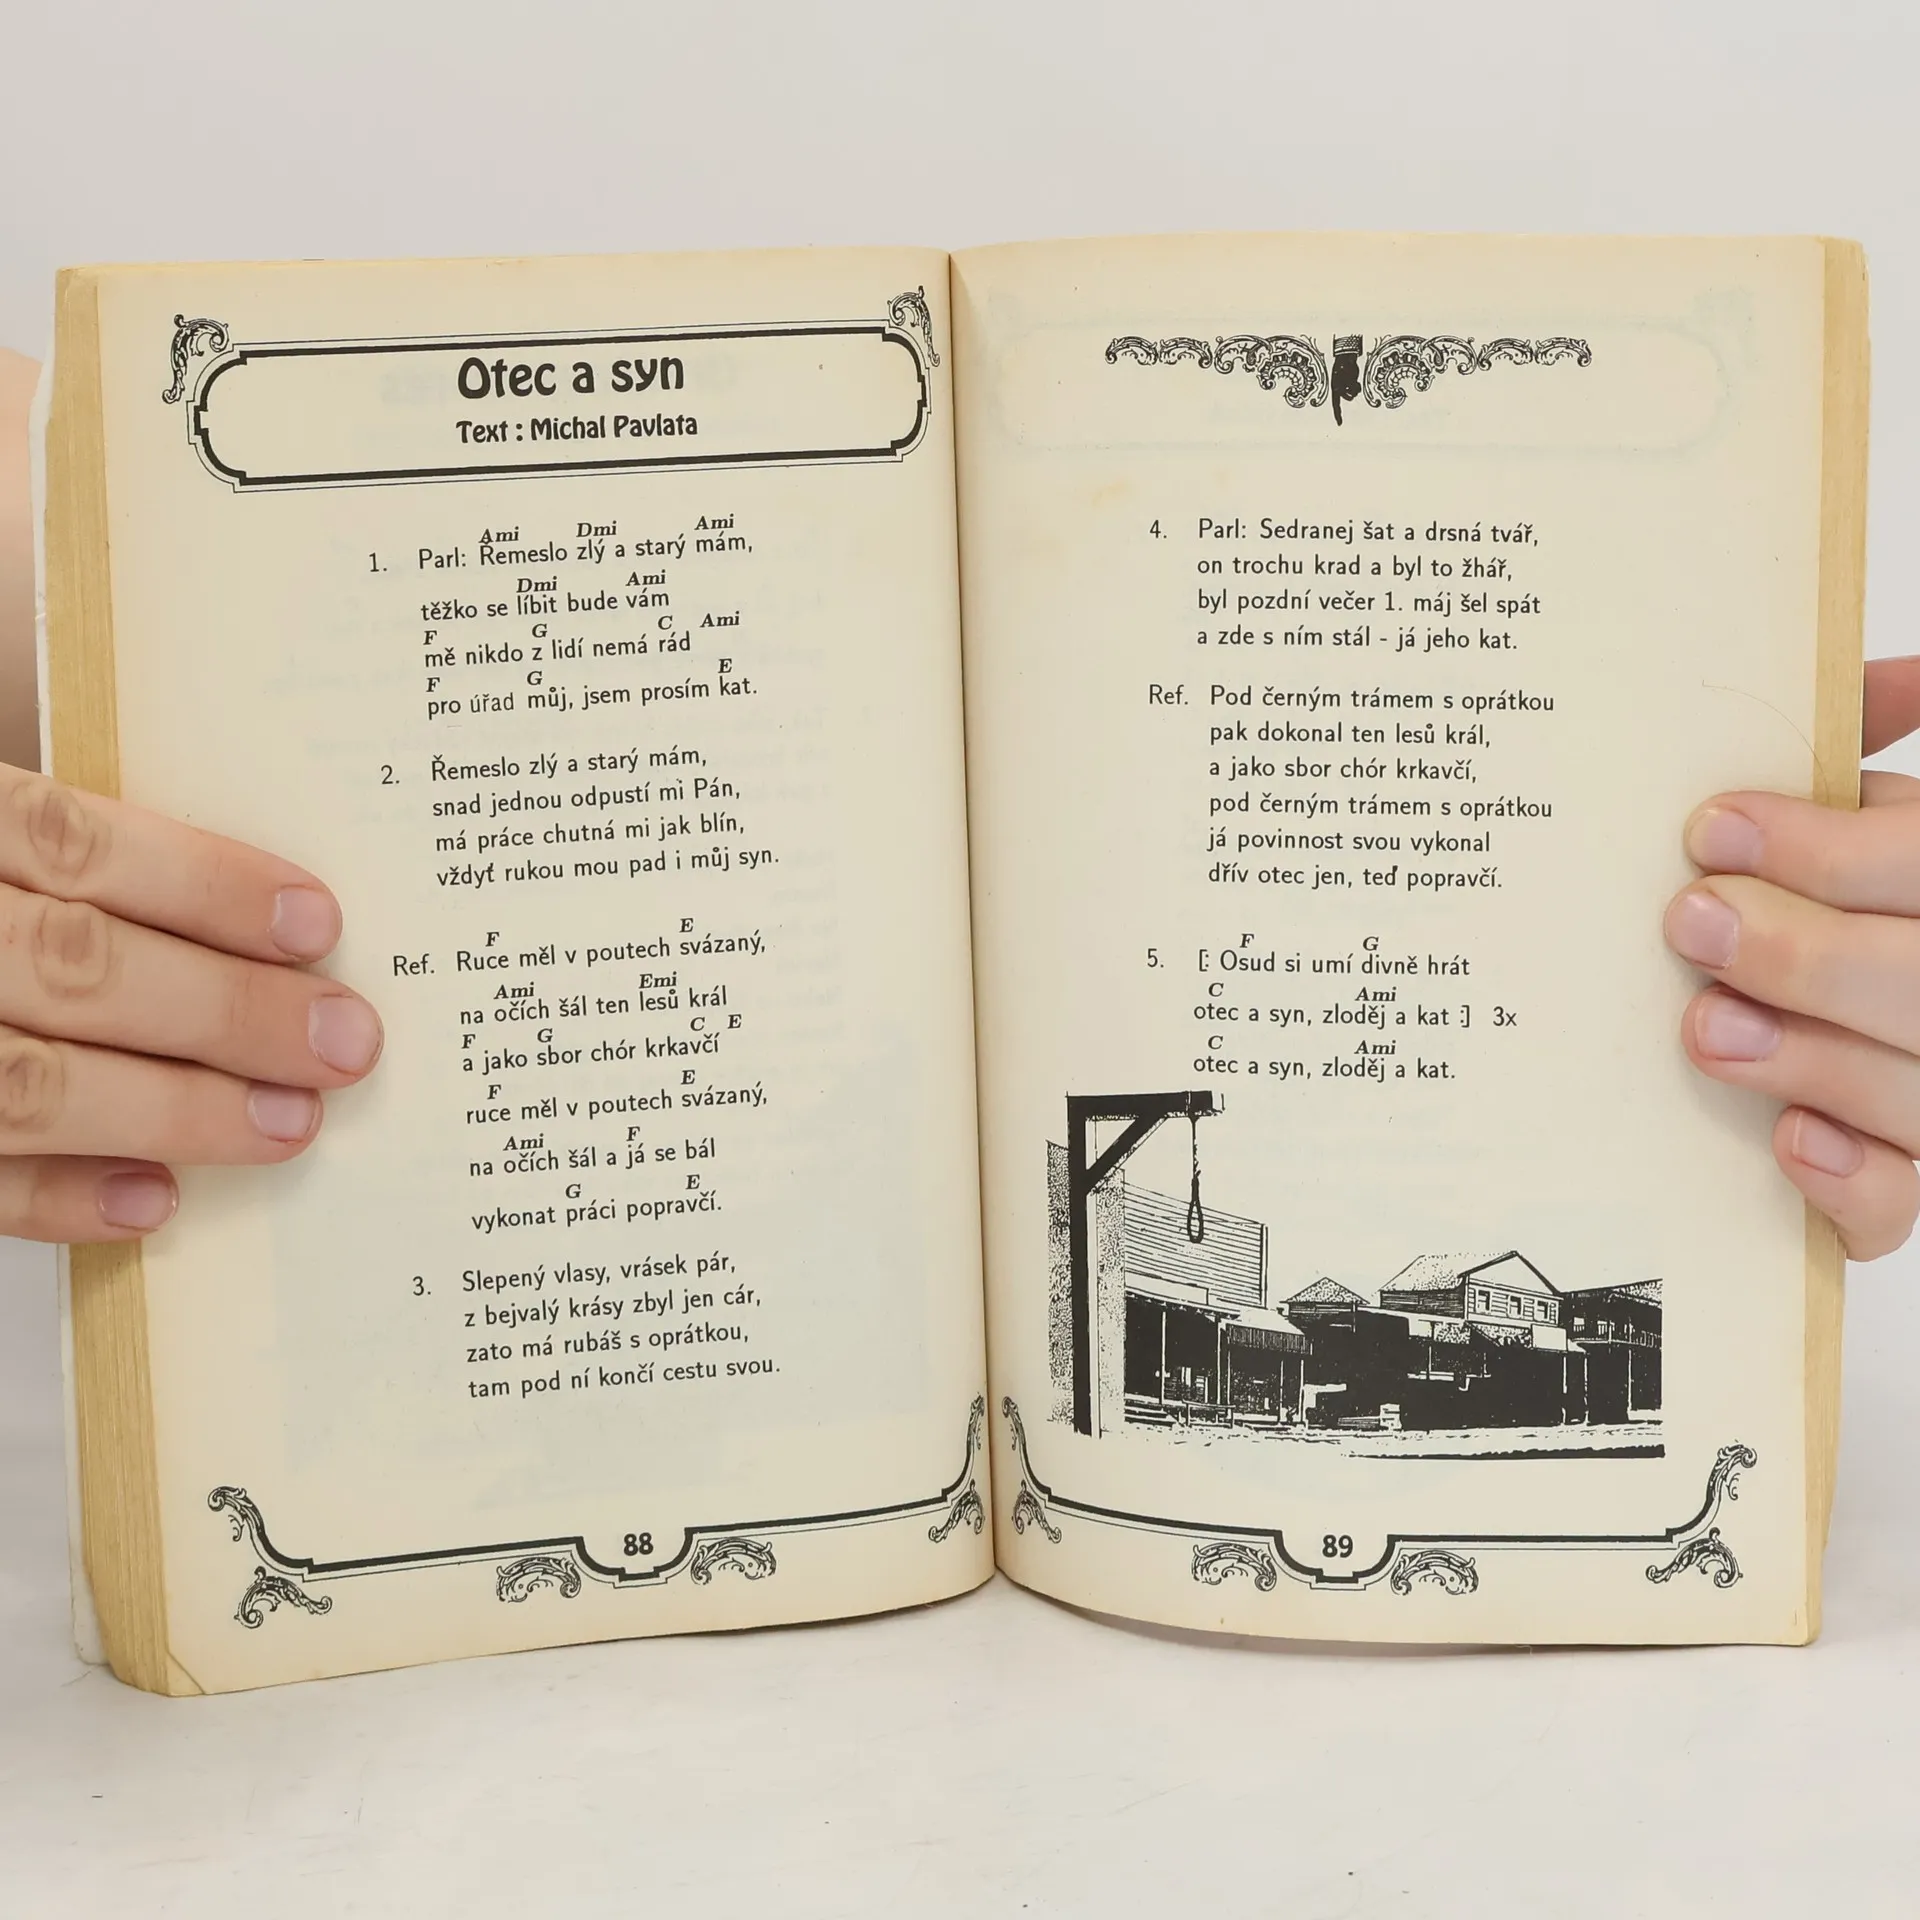 Otec a syn
Text : Michal Pavlata
Ami Dmi Ami
1. Parl: Řemeslo zlý a starý mám,
Dmi Ami
těžko se líbit bude vám
F G C Ami
mě nikdo z lidí nemá rád
F G E
pro úřad můj, jsem prosím kat.
2. Řemeslo zlý a starý mám,
snad jednou odpustí mi Pán,
má práce chutná mi jak blín,
vždyť rukou mou pad i můj syn.
F E
Ref. Ruce měl v poutech svázaný,
Ami Emi
na očích šál ten lesů král
F G C E
a jako sbor chór krkavčí
F E
ruce měl v poutech svázaný,
Ami F
na očích šál a já se bál
G E
vykonat práci popravčí.
3. Slepený vlasy, vrásek pár,
z bejvalý krásy zbyl jen cár,
zato má rubáš s oprátkou,
tam pod ní končí cestu svou.
88
4. Parl: Sedranej šat a drsná tvář,
on trochu krad a byl to žhář,
byl pozdní večer 1. máj šel spát
a zde s ním stál - já jeho kat.
Ref. Pod černým trámem s oprátkou
pak dokonal ten lesů král,
a jako sbor chór krkavčí,
pod černým trámem s oprátkou
já povinnost svou vykonal
dřív otec jen, teď popravčí.
F G
5. [: Osud si umí divně hrát
C Ami
otec a syn, zloděj a kat :] 3x
C Ami
otec a syn, zloděj a kat.
89